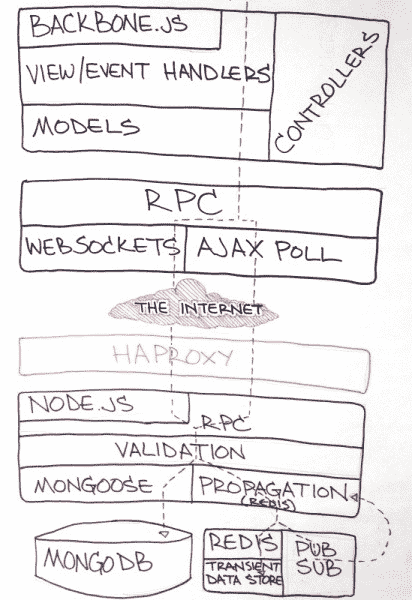 BACKBONE.JS
VIEW/EVENT HANDLERS
MODELS
CONTROLLERS
RPC
WEBSOCKETS
AJAX POLL
THE INTERNET
HAPROXY
NODE.JS
RPC
VALIDATION
MONGOOSE
PROPAGATION
(REDIS)
MONGODB
REDIS
TRANSIENT
DATA STORE
PUB
SUB